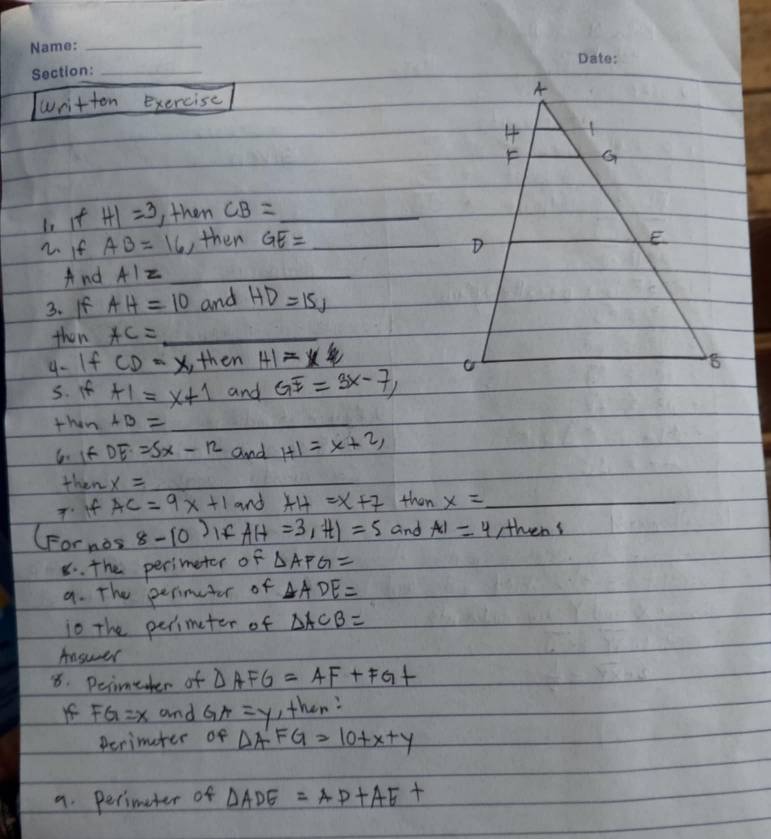 Name:
Date:
Section:
Written Exercise
A
H I
F G
D E
C B
1. If HI = 3, then CB =
2. If AB = 16, then GE =
And AI =
3. If AH = 10 and HD = 15,
then AC =
4- If CD = x, then HI =
5. If AI = x+1 and GE = 3x-7,
then AB =
6. If DE = 5x - 12 and HI = x+2,
then x =
7. If AC = 9x+1 and AH = x+7 then x =
(For nos 8-10) If AH = 3, HI = 5 and AI = 4, then:
8.. The perimeter of ΔAFG =
9. The perimeter of ΔADE =
10 The perimeter of ΔACB =
Answer
8. Perimeter of ΔAFG = AF + FG +
If FG = x and GA = y, then:
Perimeter of ΔAFG = 10+x+y
9. Perimeter of ΔADE = AD + AE +